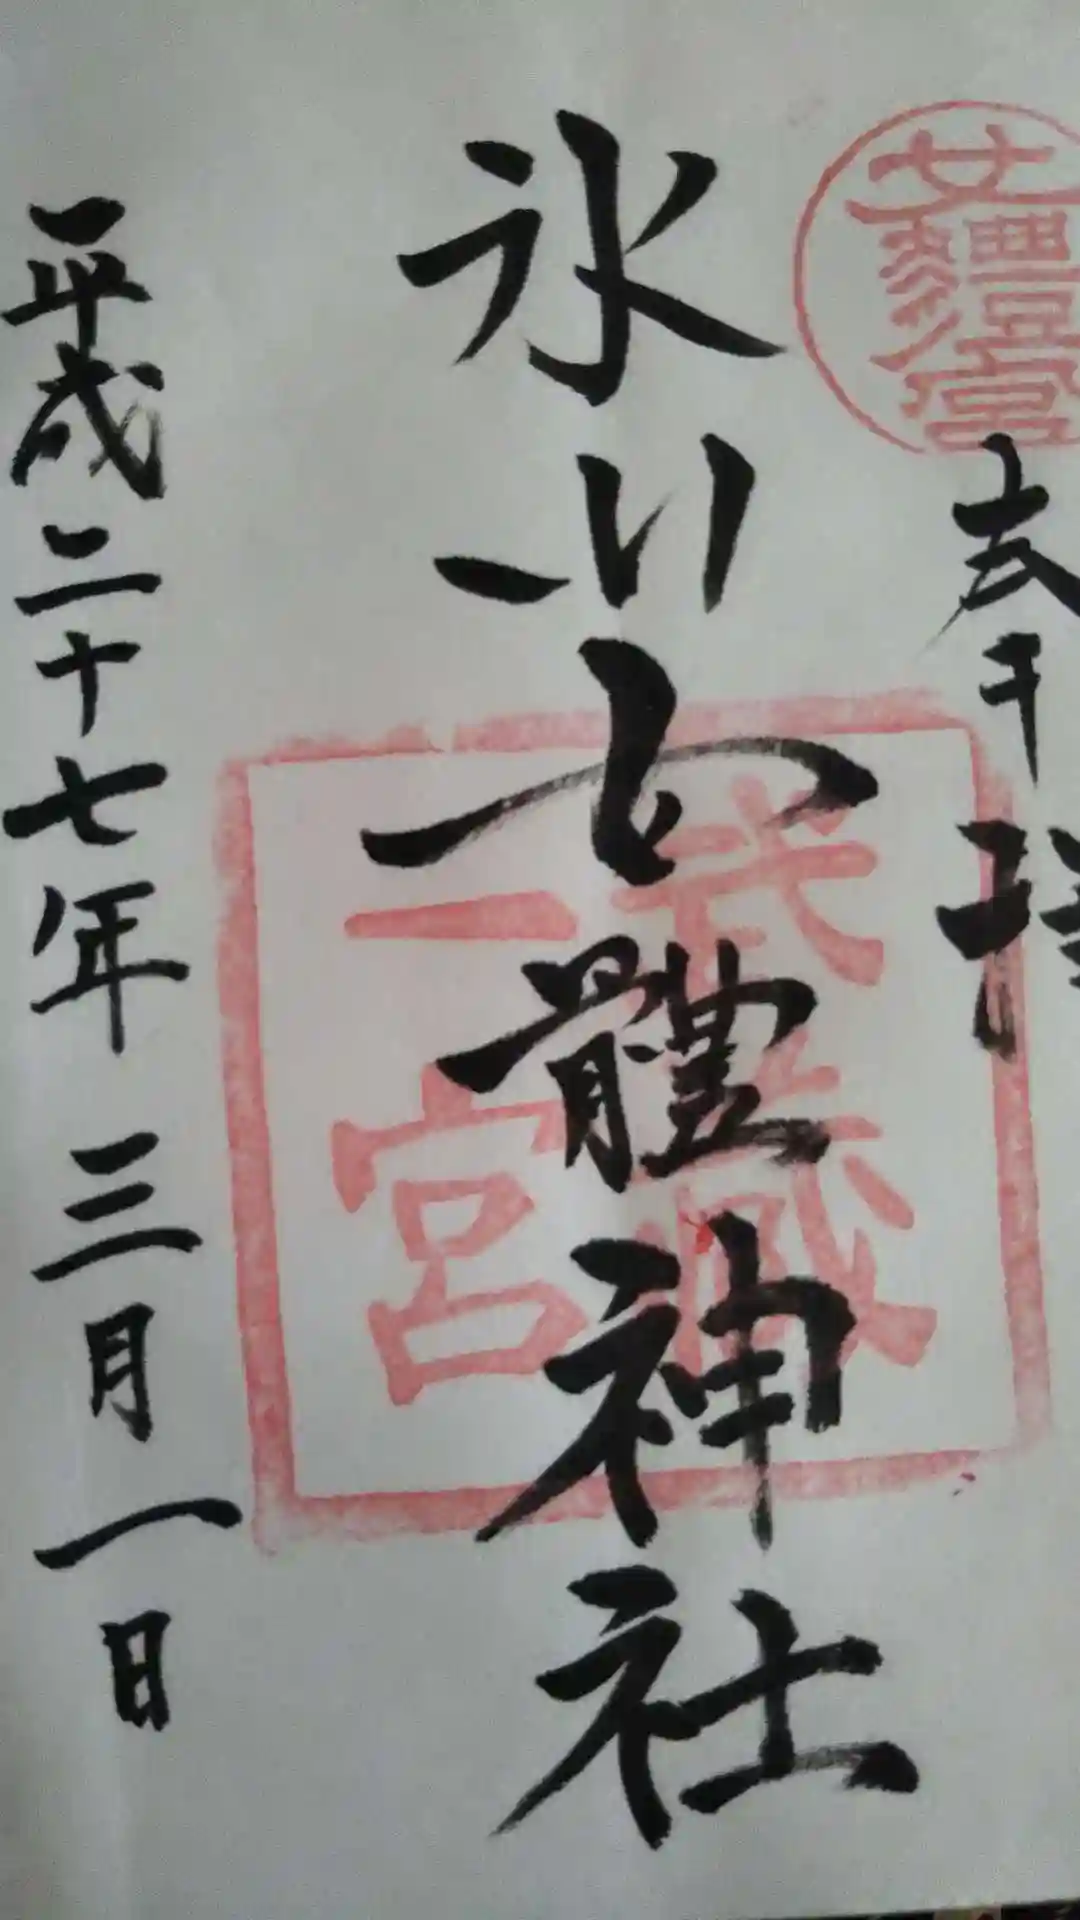 女體宮
氷川女體神社
武蔵
一宮
平成二十七年三月一日